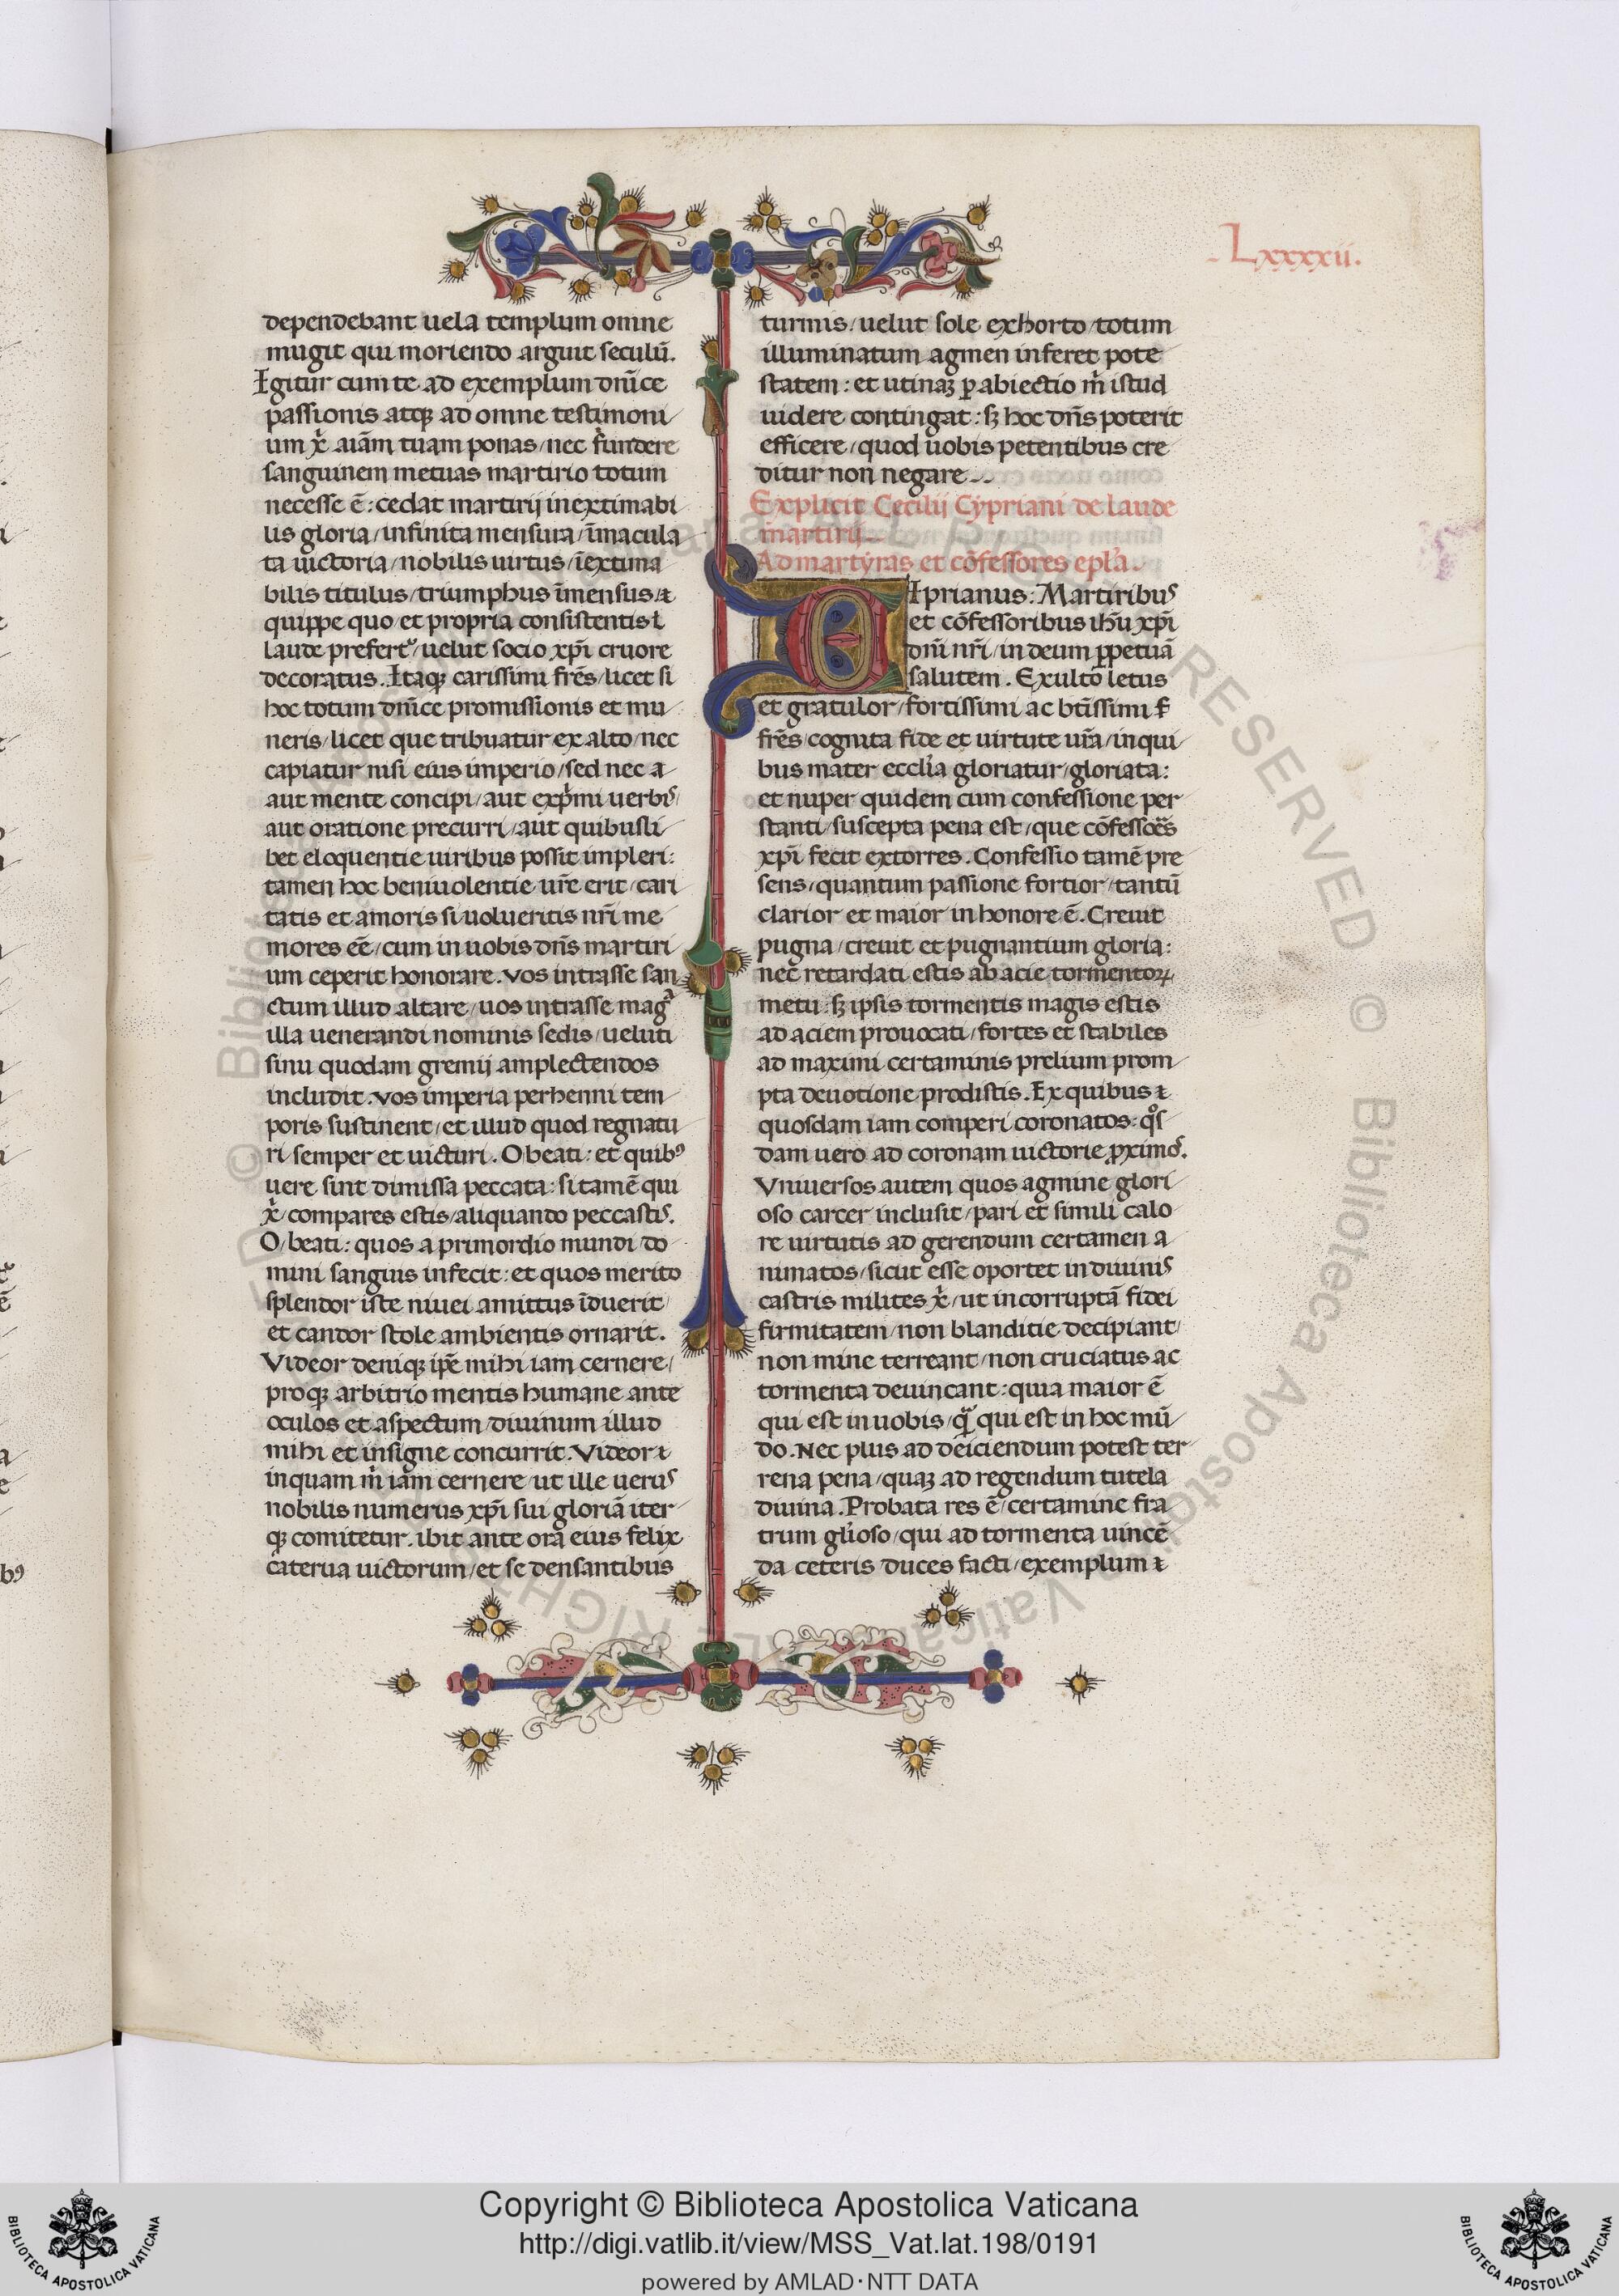 Lxxxxii.
dependebant uela templum omne
mugit qui moriendo arguit seculū.
Igitur cum te ad exemplum dnīce
passionis atqꝫ ad omne testimoni
um xͥ aīam tuam ponas / nec fundere
sanguinem metuas martirio totum
necesse ē : cedat martirij inextimabi
lis gloria / infinita mensura / īmacula
ta uictoria / nobilis uirtus / īextima
bilis titulus / triumphus īmensus / ⁊
quippe quo et propria consistentis ł
laude prefertᷣ / uelut socio xp̄i cruore
decoratus. Itaqꝫ carissimi frēs / licet si
hoc totum dnīce promissionis et mu
neris / licet que tribuatur ex alto / nec
capiatur nisi eius imperio / sed nec a
aut mente concipi / aut expͥmi uerbis
aut oratione precurri / aut quibusli
bet eloquentie uiribus possit impleri :
tamen hoc beniuolentie ur̄e erit / cari
tatis et amoris si uolueritis nr̄i me
mores eē / cum in uobis dn̄s martiri
um ceperit honorare. Vos intrasse san
ctum illud altare / uos intrasse magᷓ
illa uenerandi nominis sedis / ueluti
sinu quodam gremij amplectendos
includit. Vos imperia perhenni tem
poris sustinent / et illud quod regnatu
ri semper et uicturi. O beati : et quibꝰ
uere sint dimissa peccata : si tamē qui
xͥ compares estis / aliquando peccastis.
O / beati : quos a primordio mundi do
mini sanguis infecit : et quos merito
splendor iste niuei amittus īduerit /
et candor stole ambientis ornarit.
Videor deniqꝫ ip̄e mihi iam cernere /
proqꝫ arbitrio mentis humane ante
oculos et aspectum / diuinum illud
mihi et insigne concurrit. Videor ⁊
inquam mͥ iam cernere / ut ille uerus
nobilis numerus xp̄i sui gloriā iter
qꝫ comitetur. ibit ante ora eius felix
caterua uictorum / et se densantibus
turmis / uelut sole exhorto / totum
illuminatum agmen inferet pote
statem : et utinaꝫ ꝑ abiectio mͥ istud
uidere contingat : sꝫ hoc dn̄s poterit
efficere / quod uobis petentibus cre
ditur non negare.
Explicit Cecilij Cypriani de laude
martirij
Ad martyras et cōfessores epl̄a.
CIprianus : Martiribus
et cōfessoribus ihū xp̄i
dnī nr̄i / in deum ꝑpetuā
salutem. Exulto letus
et gratulor / fortissimi ac bt̄issimi f
frēs / cognita fide et uirtute ur̄a / in qui
bus mater eccl̄ia gloriatur / gloriata :
et nuper quidem cum confessione per
stanti / suscepta pena est / que cōfessores
xp̄i fecit extorres. Confessio tamē pre
sens / quantum passione fortior / tantū
clarior et maior in honore ē. Creuit
pugna / creuit et pugnantium gloria :
nec retardati estis ab acie tormentoꝝ
metu : sꝫ ipsis tormentis magis estis
ad aciem prouocati / fortes et stabiles
ad maximi certaminis prelium prom
pta deuotione prodistis. Ex quibus ⁊
quosdam iam comperi coronatos : qͦs
dam uero ad coronam uictorie ꝓximos.
Vniuersos autem quos agmine glori
oso carcer inclusit / pari et simili calo
re uirtutis ad gerendum certamen a
nimatos / sicut esse oportet in diuinis
castris milites xͥ / ut incorruptā fidei
firmitatem / non blanditie decipiant /
non mine terreant / non cruciatus ac
tormenta deuincant : quia maior ē
qui est in uobis / qᷓ qui est in hoc mū
do. Nec plus ad deiciendum potest ter
rena pena / quaꝫ ad regendum tutela
diuina. Probata res ē / certamine fra
trum gl̄ioso / qui ad tormenta uincē
da ceteris duces facti / exemplum ⁊
© Biblioteca Apostolica Vaticana
ALL RIGHTS RESERVED
Copyright © Biblioteca Apostolica Vaticana
http://digi.vatlib.it/view/MSS_Vat.lat.198/0191
powered by AMLAD·NTT DATA
BIBLIOTECA APOSTOLICA VATICANA
BIBLIOTECA APOSTOLICA VATICANA